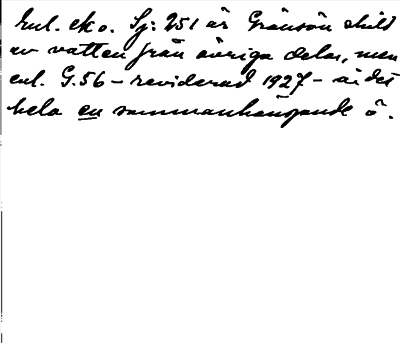 Enl. eko. Sj: 251 är Gränsön skild
av vatten från övriga delar, men
enl. G.56 - reviderad 1927 - är det
hela en sammanhängande ö.